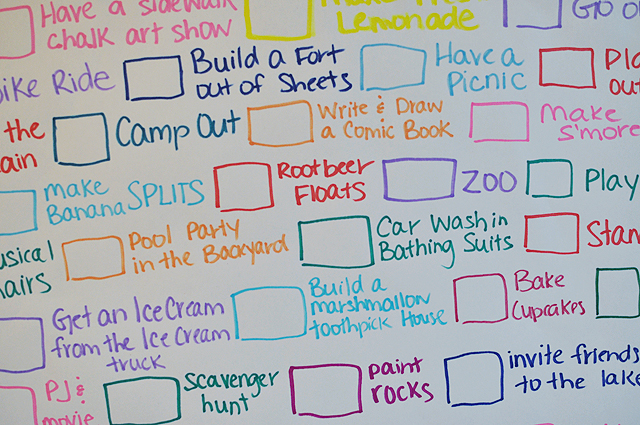 Have a sidewalk
chalk art show
Lemonade
Go
Bike Ride
Build a Fort
out of Sheets
Have a
Picnic
the
Camp Out
Write & Draw
a Comic Book
Make
S'more
make
Banana SPLITS
Rootbeer
Floats
ZOO
Play
Pool Party
in the Backyard
Car Wash in
Bathing Suits
Get an Ice Cream
from the Ice Cream
truck
Build a
marshmallow
toothpick House
Bake
Cupcakes
PJ &
movie
scavenger
hunt
paint
rocks
invite friends
to the lake